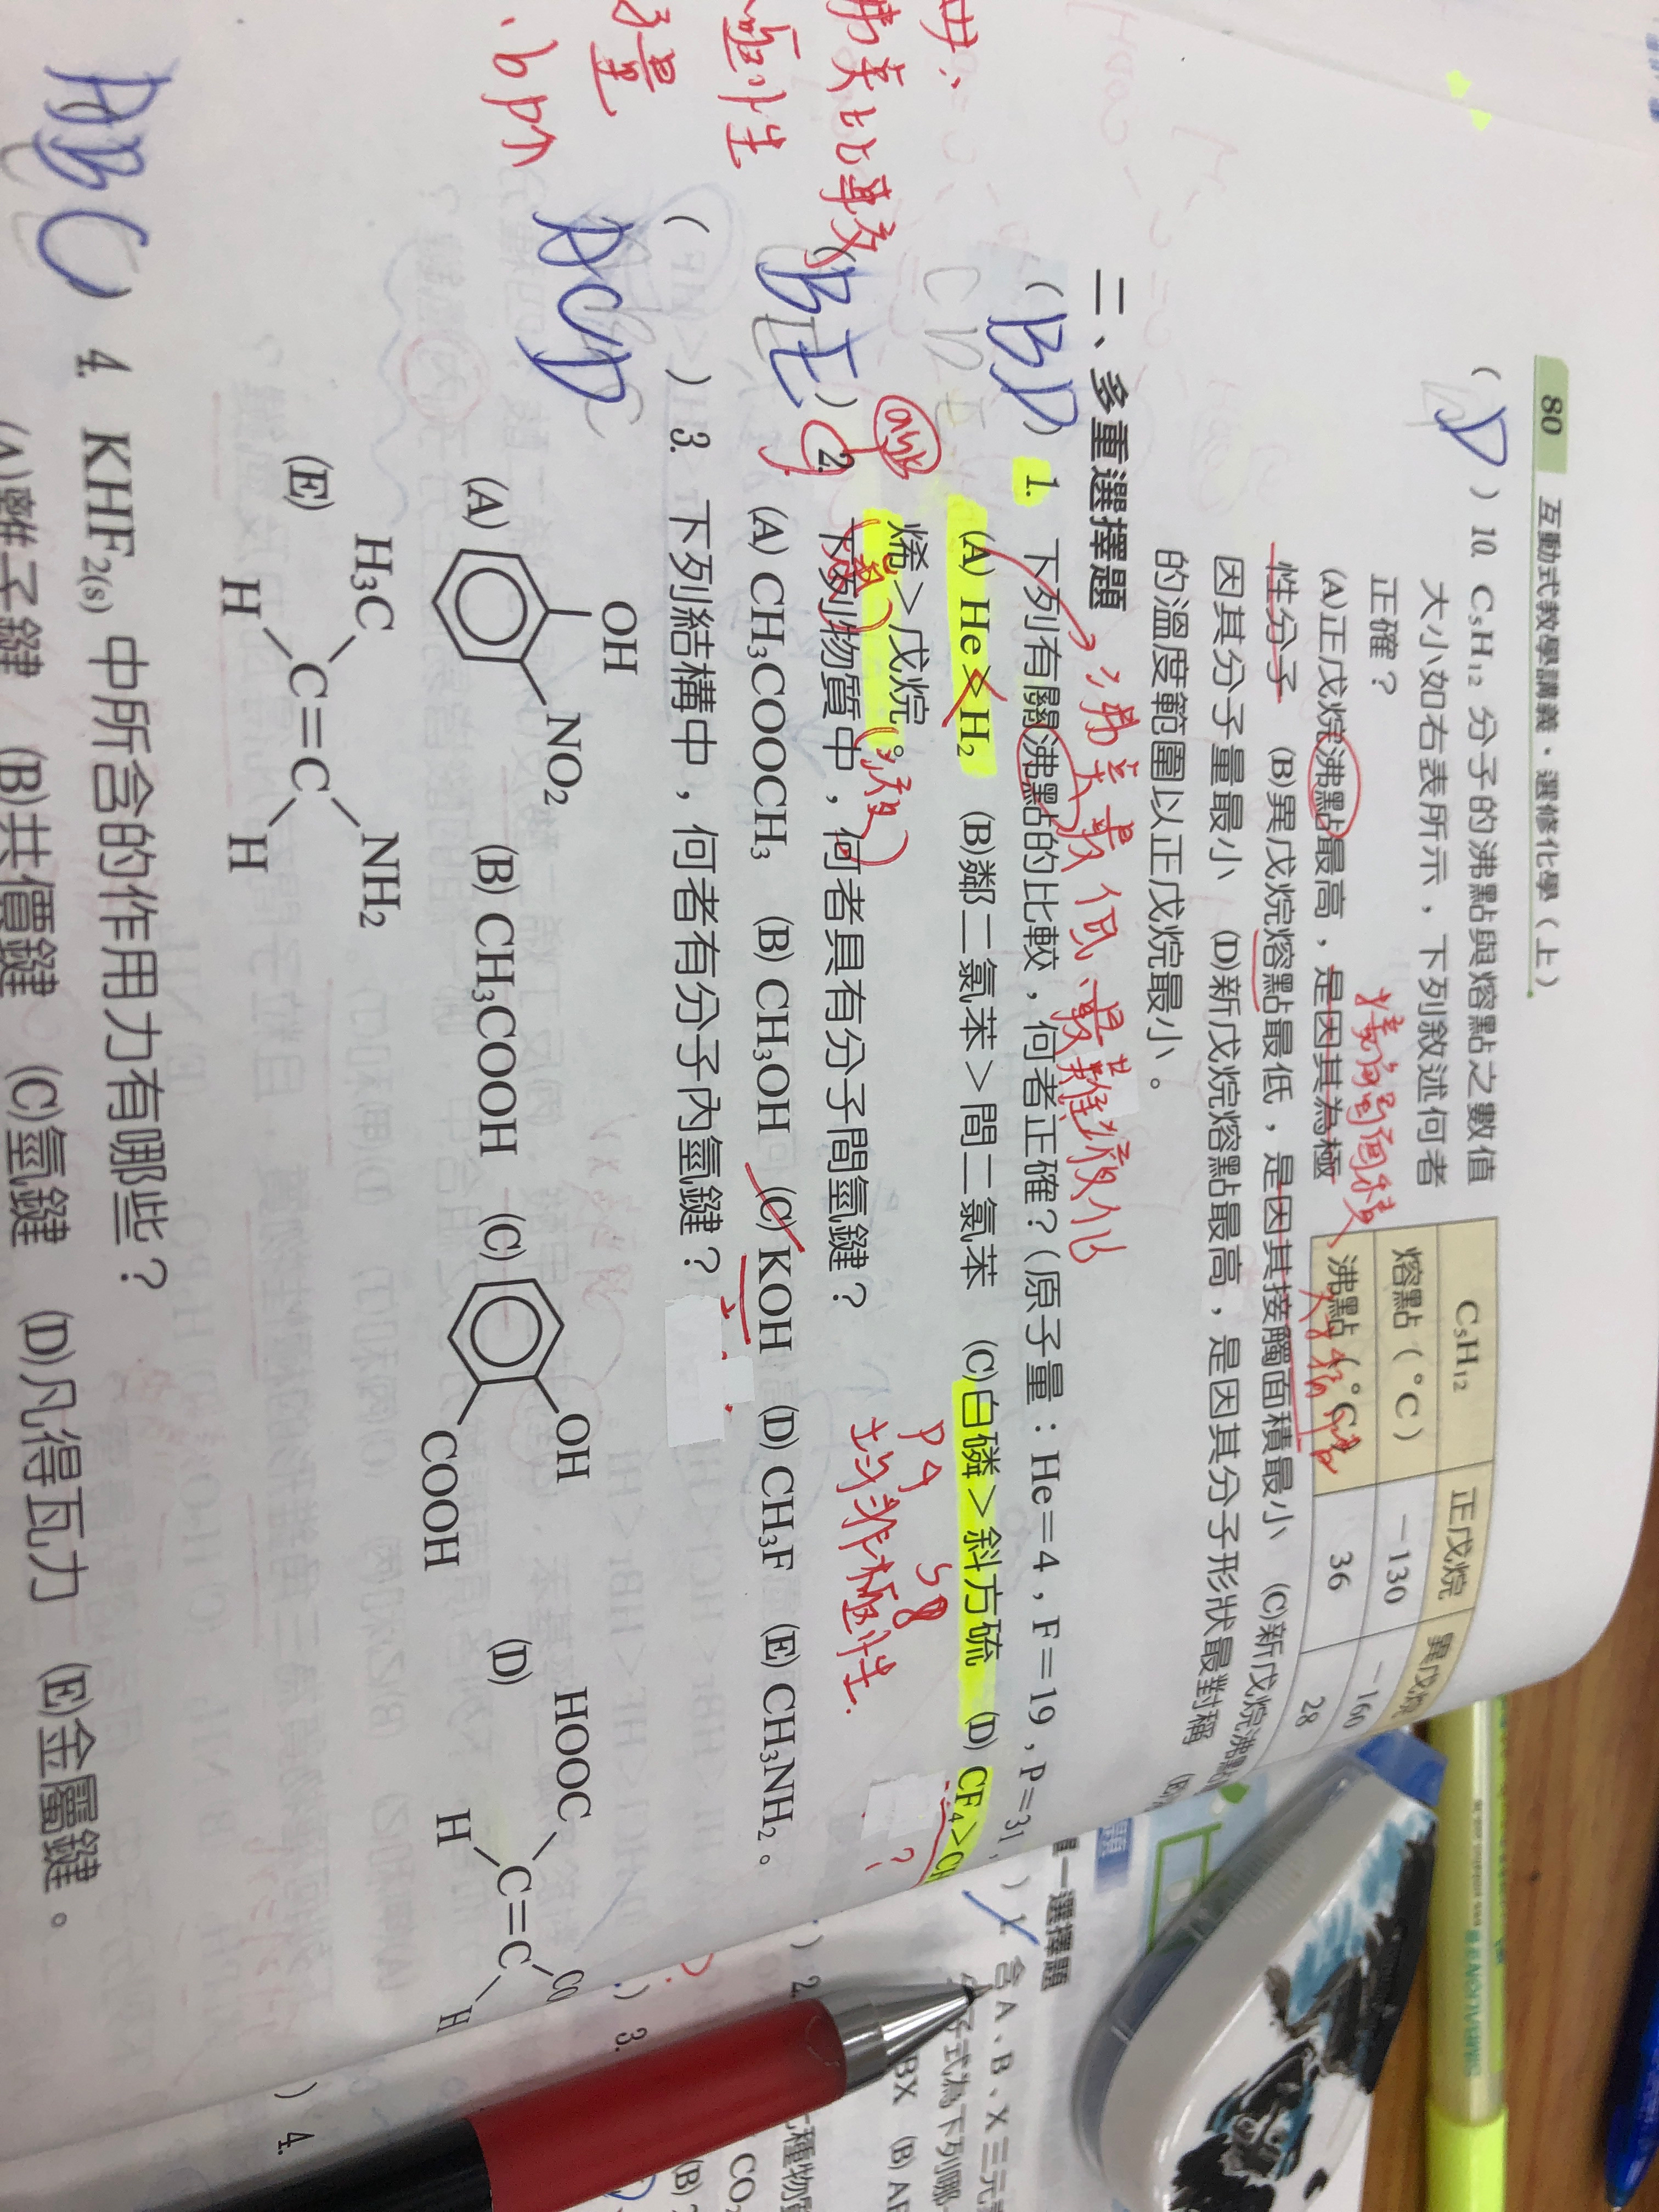 80 互動式教學講義・選修化學（上）
( D ) 10. C₅H₁₂ 分子的沸點與熔點之數值
大小如右表所示，下列敘述何者
正確？
(A)正戊烷沸點最高，是因其為極
性分子 (B)異戊烷熔點最低，是因其接觸面積最小 (C)新戊烷沸點
因其分子量最小 (D)新戊烷熔點最高，是因其分子形狀最對稱
的溫度範圍以正戊烷最小。
接觸面積
C₅H₁₂ 正戊烷 異戊烷
熔點（°C） －130 －160
沸點（°C） 36 28
二、多重選擇題
沸點最低、最難液化
( BD ) 1. 下列有關沸點的比較，何者正確？（原子量：He＝4，F＝19，P＝31，
(A) He＞H₂ (B)鄰二氯苯＞間二氯苯 (C)白磷＞斜方硫 (D) CF₄＞CH
烯＞戊烷。
P4 S8
均非極性
?
( BE ) 2. 下列物質中，何者具有分子間氫鍵？
(A) CH₃COOCH₃ (B) CH₃OH (C) KOH (D) CH₃F (E) CH₃NH₂。
( ACD ) 3. 下列結構中，何者有分子內氫鍵？
(A) OH NO₂ (B) CH₃COOH (C) OH COOH (D) HOOC C=C H H
(E) H₃C NH₂ C=C H H
ABC ) 4. KHF₂₍ₛ₎ 中所含的作用力有哪些？
(A)離子鍵 (B)共價鍵 (C)氫鍵 (D)凡得瓦力 (E)金屬鍵。
極性
bp↑
一選擇題
) 1. 含 A、B、X 三元
子式為下列哪
BX (B) AB
) 2.
種物質
CO₂
(B)
) 3.
) 4.